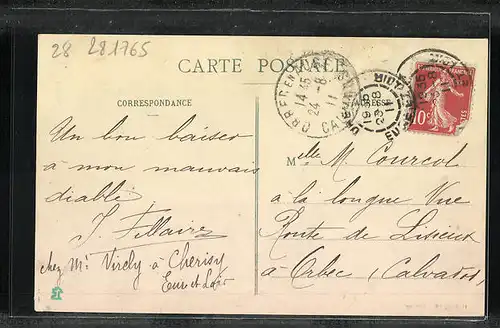 28 281765
CARTE POSTALE
CORRESPONDANCE
ADRESSE
Un bon baiser
à mon mauvais
diable
J. Fillaire
chez Mr Virely à Cherisy
Eure et Loir
Melle M. Courcol
à la longue Vue
Route de Lisieux
à Orbec (Calvados)
ORBEC-EN-AUGE
14 45
24 -8
11
19 35
23 -8
11
10c